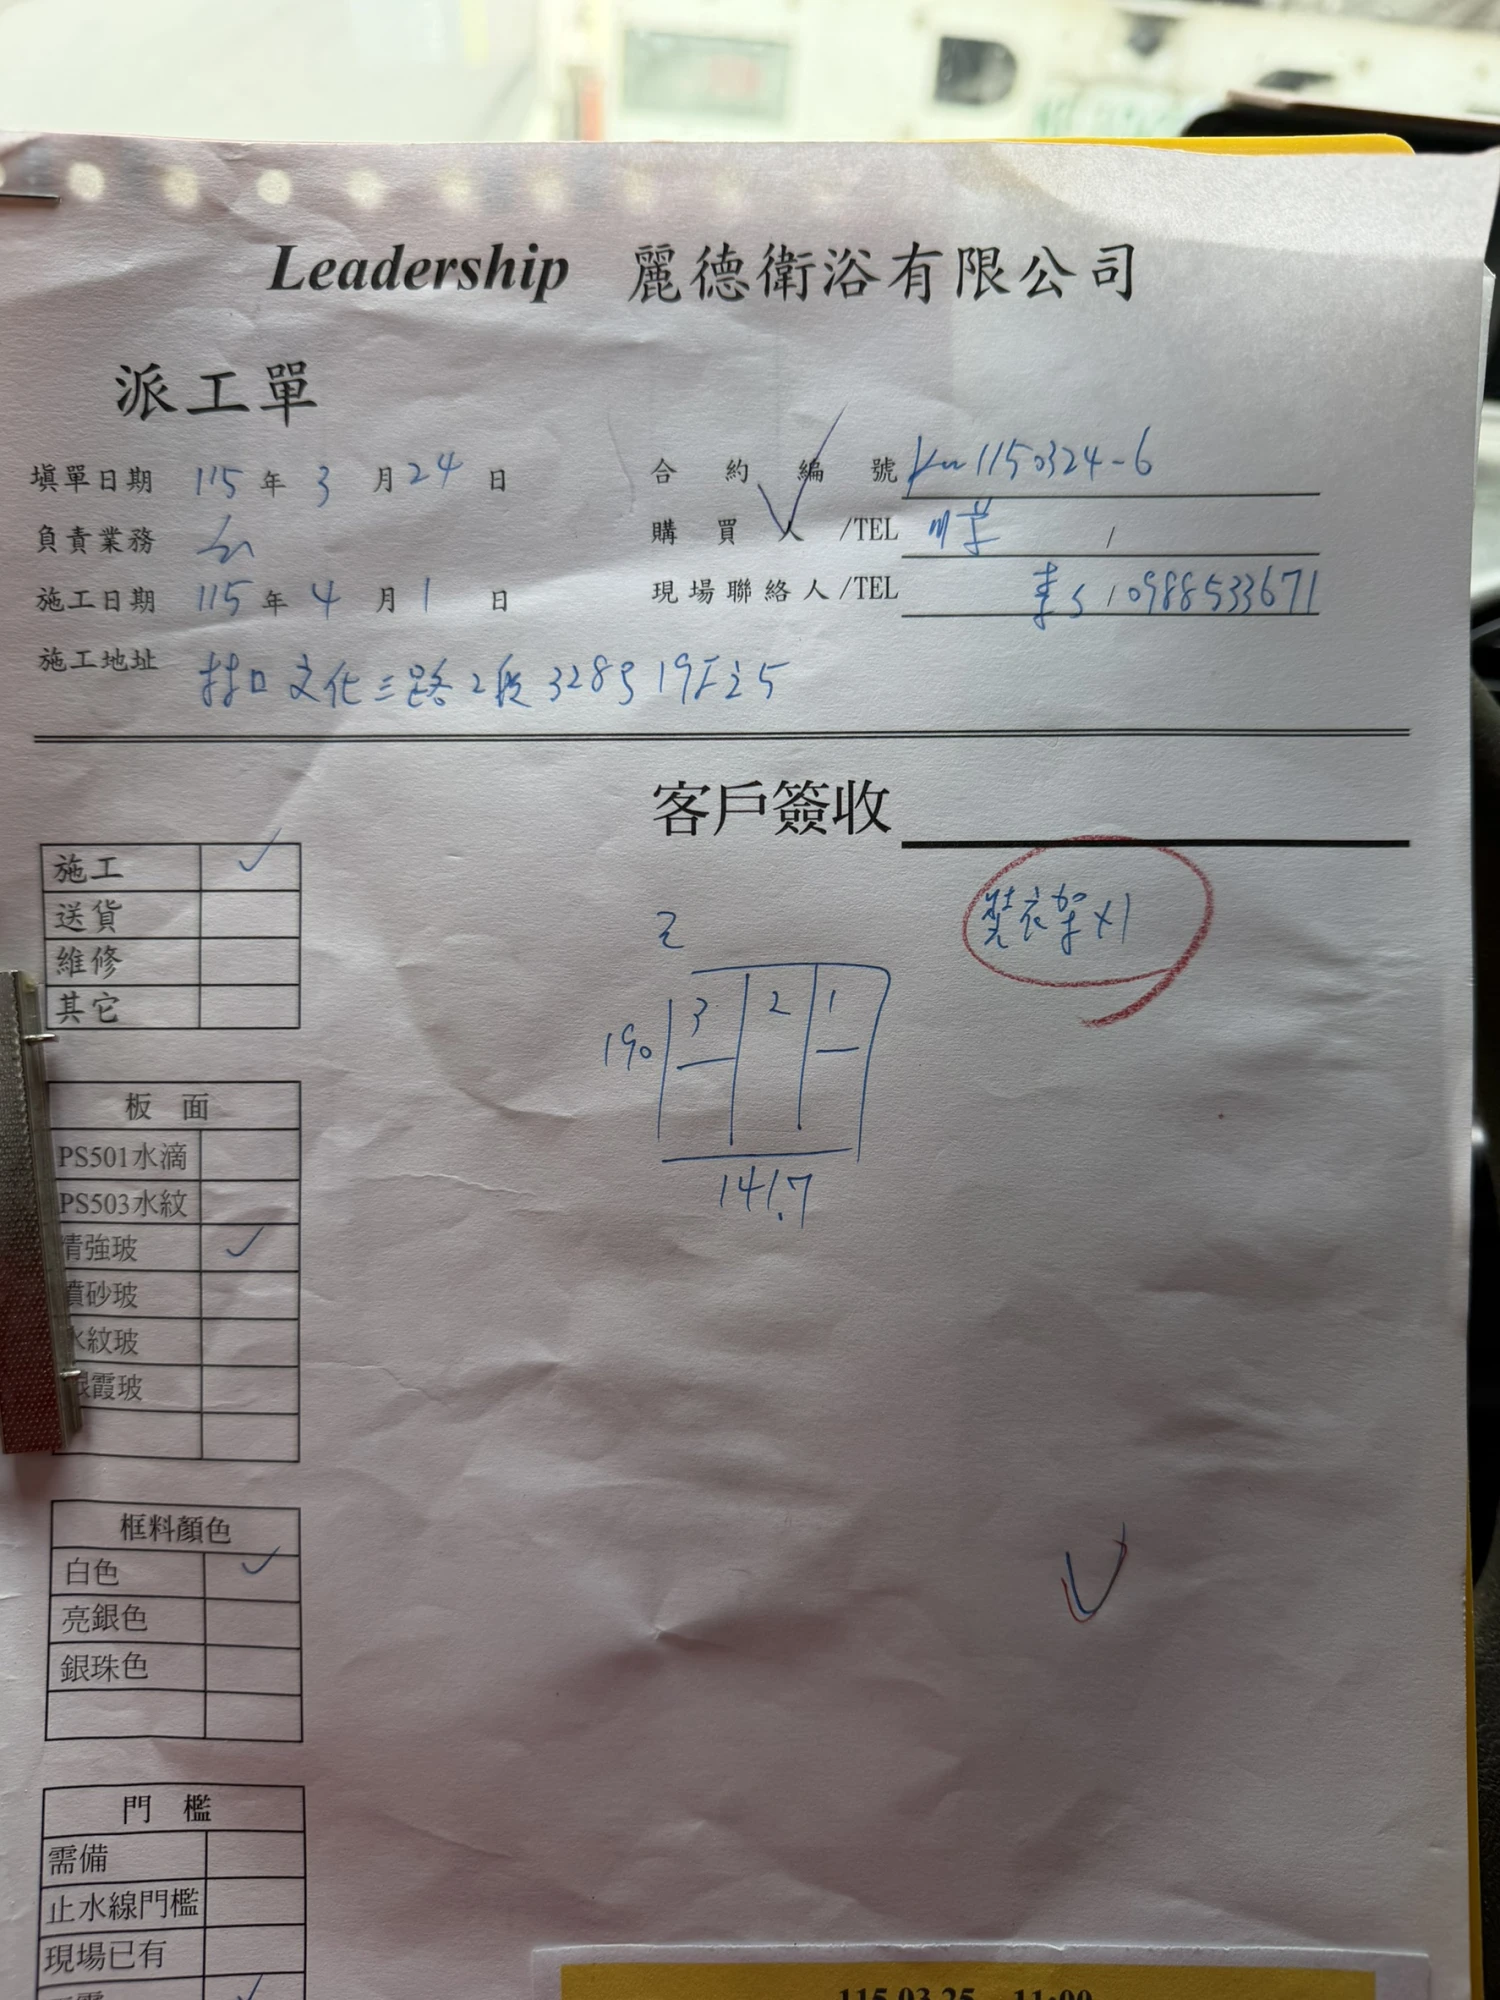 Leadership 麗德衛浴有限公司
派工單
填單日期 115 年 3 月 24 日 合約編號 1150324-6
負責業務 購買人/TEL /
施工日期 115 年 4 月 1 日 現場聯絡人/TEL / 0988533671
施工地址 林口文化三路2段328号19F之5
客戶簽收
施工 ✓
送貨
維修
其它
衣架x1
乙
3 2 1
190
141.7
板 面
PS501水滴
PS503水紋
清強玻 ✓
噴砂玻
水紋玻
銀霞玻
框料顏色
白色 ✓
亮銀色
銀珠色
門 檻
需備
止水線門檻
現場已有
115.03.25 11:00